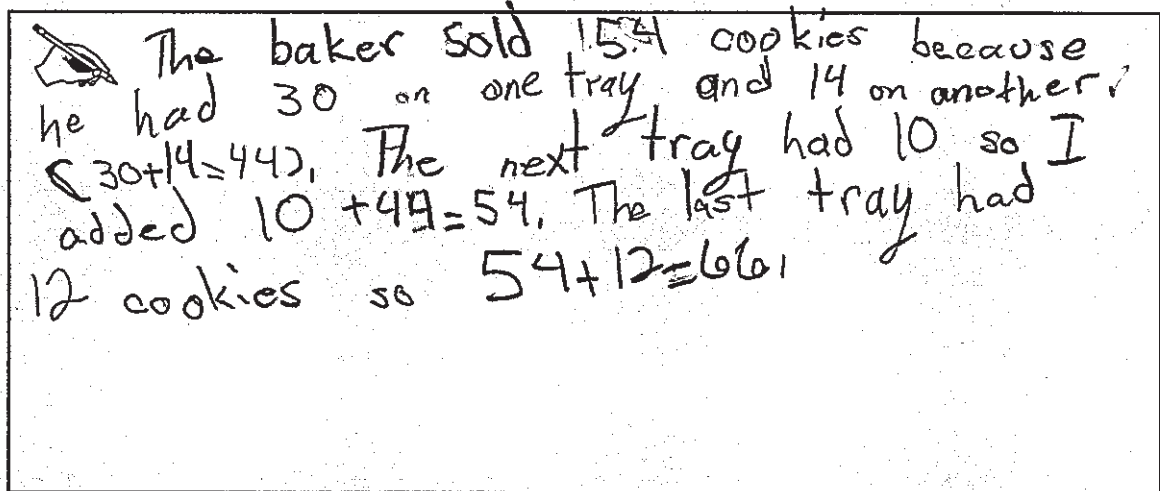 The baker sold 154 cookies because
he had 30 on one tray and 14 on another.
(30+14=44). The next tray had 10 so I
added 10 +44=54. The last tray had
12 cookies so 54+12=66.